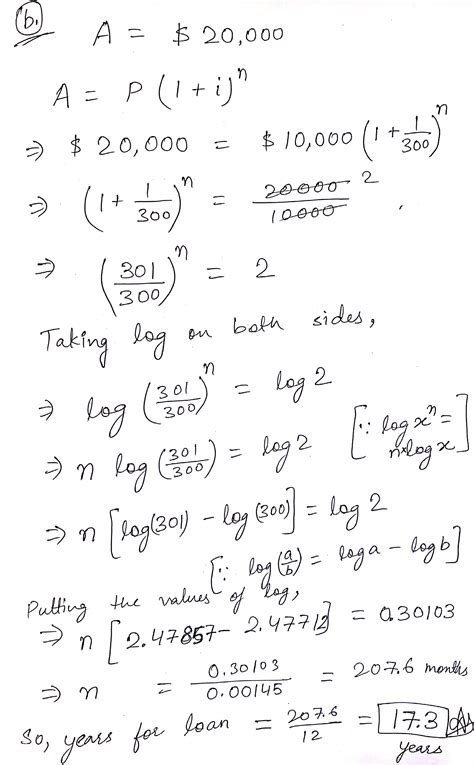 (b.) A = $ 20,000
A = P (1 + i)^n
⇒ $ 20,000 = $ 10,000 (1 + 1/300)^n
⇒ (1 + 1/300)^n = 20000/10000 2 .
⇒ (301/300)^n = 2
Taking log on both sides,
⇒ log (301/300)^n = log 2
⇒ n log (301/300) = log 2 [∵ log x^n = n×log x]
⇒ n [log(301) - log(300)] = log 2
[∵ log(a/b) = log a - log b]
Putting the values of log,
⇒ n [2.47857 - 2.47712] = 0.30103
⇒ n = 0.30103/0.00145 = 207.6 months
So, years for loan = 207.6/12 = 17.3
years